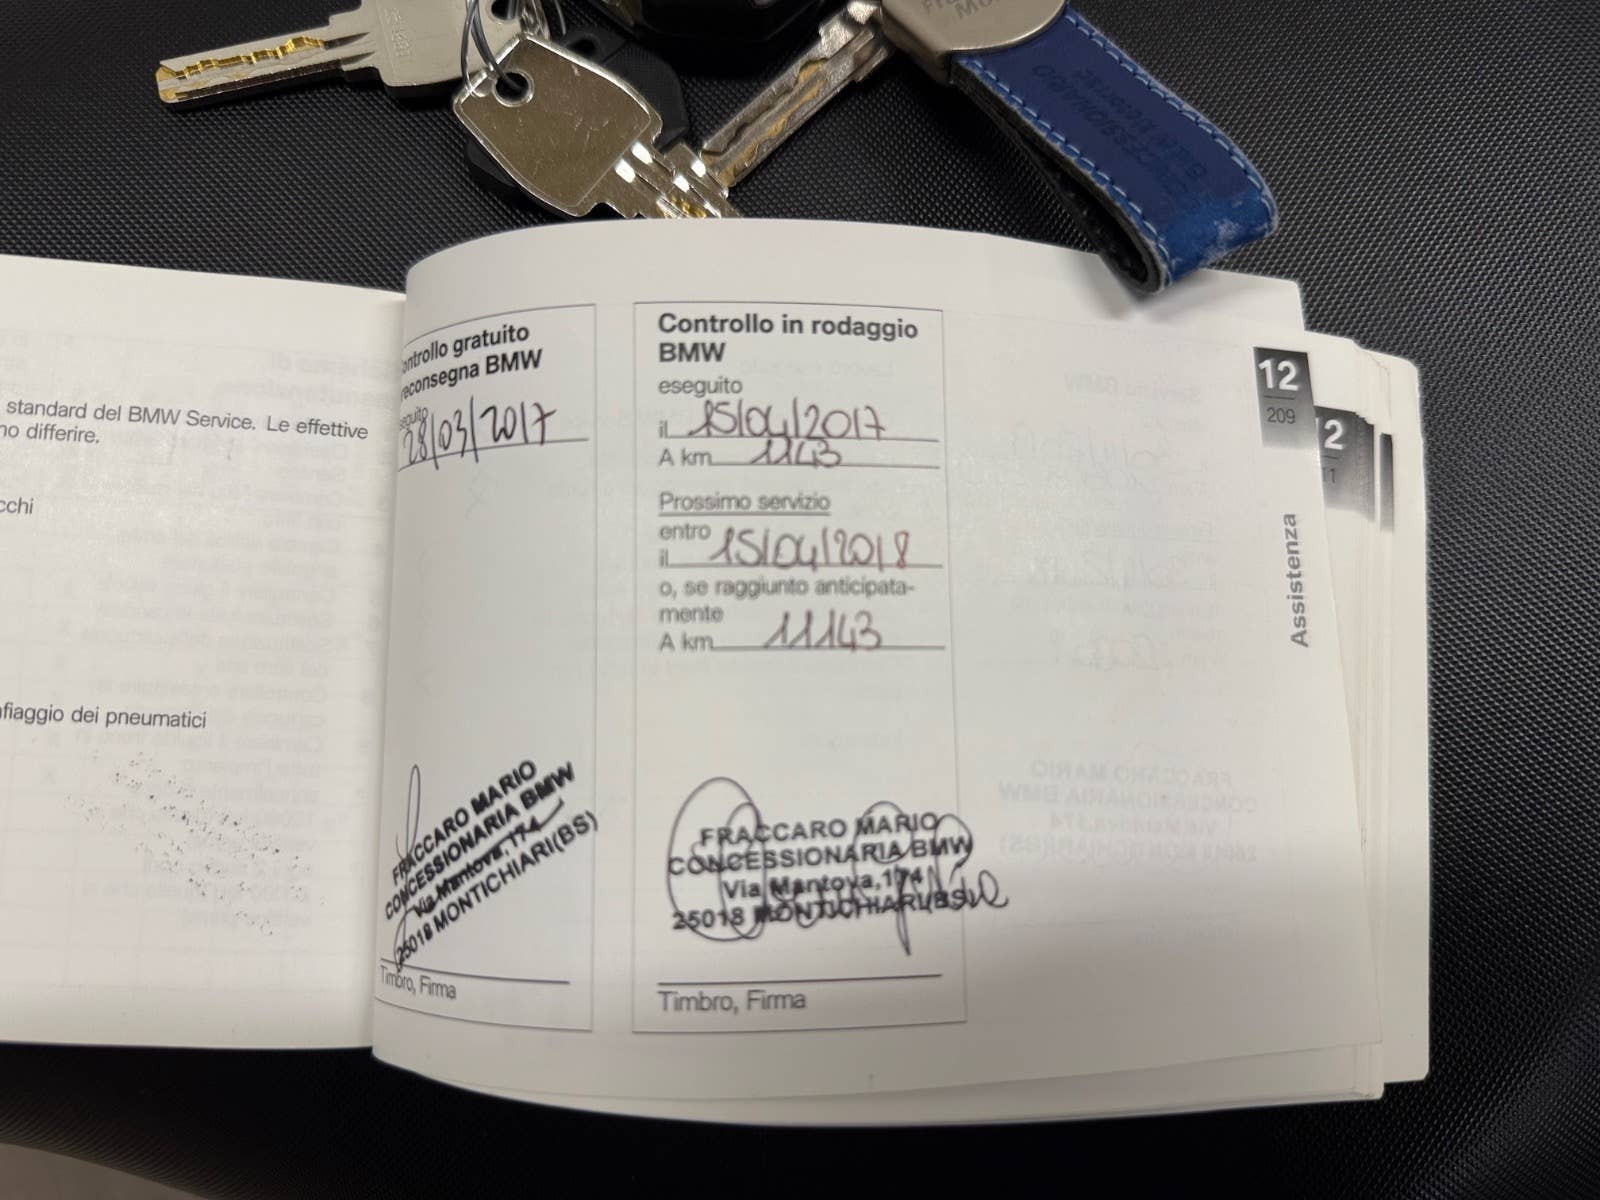 standard del BMW Service. Le effettive
differire.
fiaggio dei pneumatici
Controllo gratuito
BMW
28/03/2017
FRACCARO MARIO
CONCESSIONARIA BMW
Via Mantova, 174
25018 MONTICHIARI(BS)
Timbro, Firma
Controllo in rodaggio
BMW
eseguito
il 15/04/2017
A km 1143
Prossimo servizio
entro
il 15/04/2018
o, se raggiunto anticipata-
mente
A km 11143
FRACCARO MARIO
CONCESSIONARIA BMW
Via Mantova,174
25018 MONTICHIARI(BS)
Timbro, Firma
12
209
Assistenza